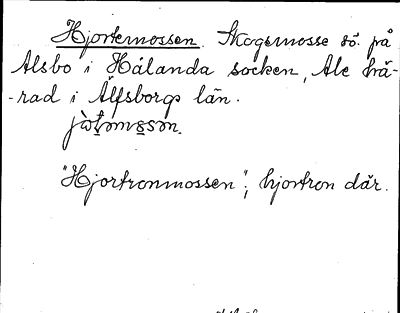 Hjortemossen. Skogsmosse sö. på
Alsbo i Hålanda socken, Ale hä-
-rad i Älfsborgs län.

"Hjortronmossen"; hjortron där.